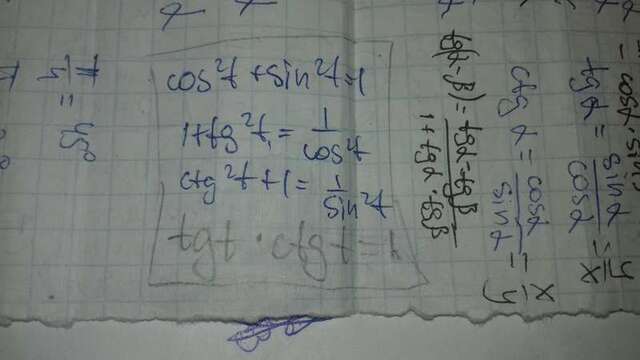 cos²t + sin²t = 1
1 + tg²t = 1/cos²t
ctg²t + 1 = 1/sin²t
tgt · ctgt = 1
tg(α-β) = tgα-tgβ/1+tgα·tgβ
ctgα = cosα/sinα = x/y
tgα = sinα/cosα = y/x